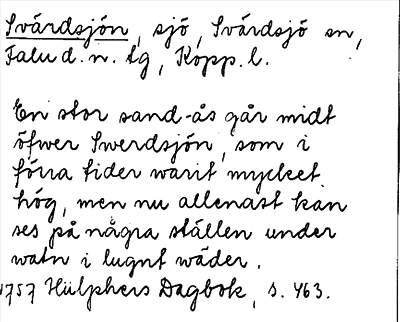 Svärdsjön, sjö, Svärdsjö sn,
Falu d. n. tg, Kopp. l.
En stor sand-ås går midt
öfwer Swerdsjön, som i
förra tider warit mycket
hög, men nu allenast kan
ses på några ställen under
watn i lugnt wäder.
1757 Hülphers Dagbok, s. 463.